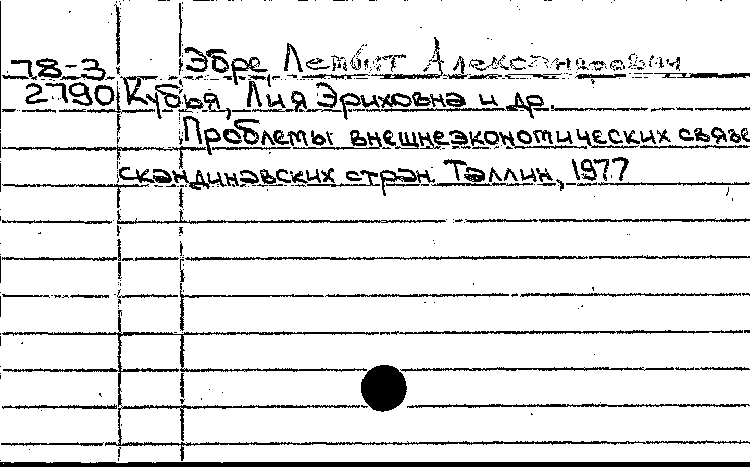 78-3 Эбре, Лембит Александрович
2790 Кубья, Лия Эриховна и др.
Проблемы внешнеэкономических связе
скандинавских стран. Таллин, 1977